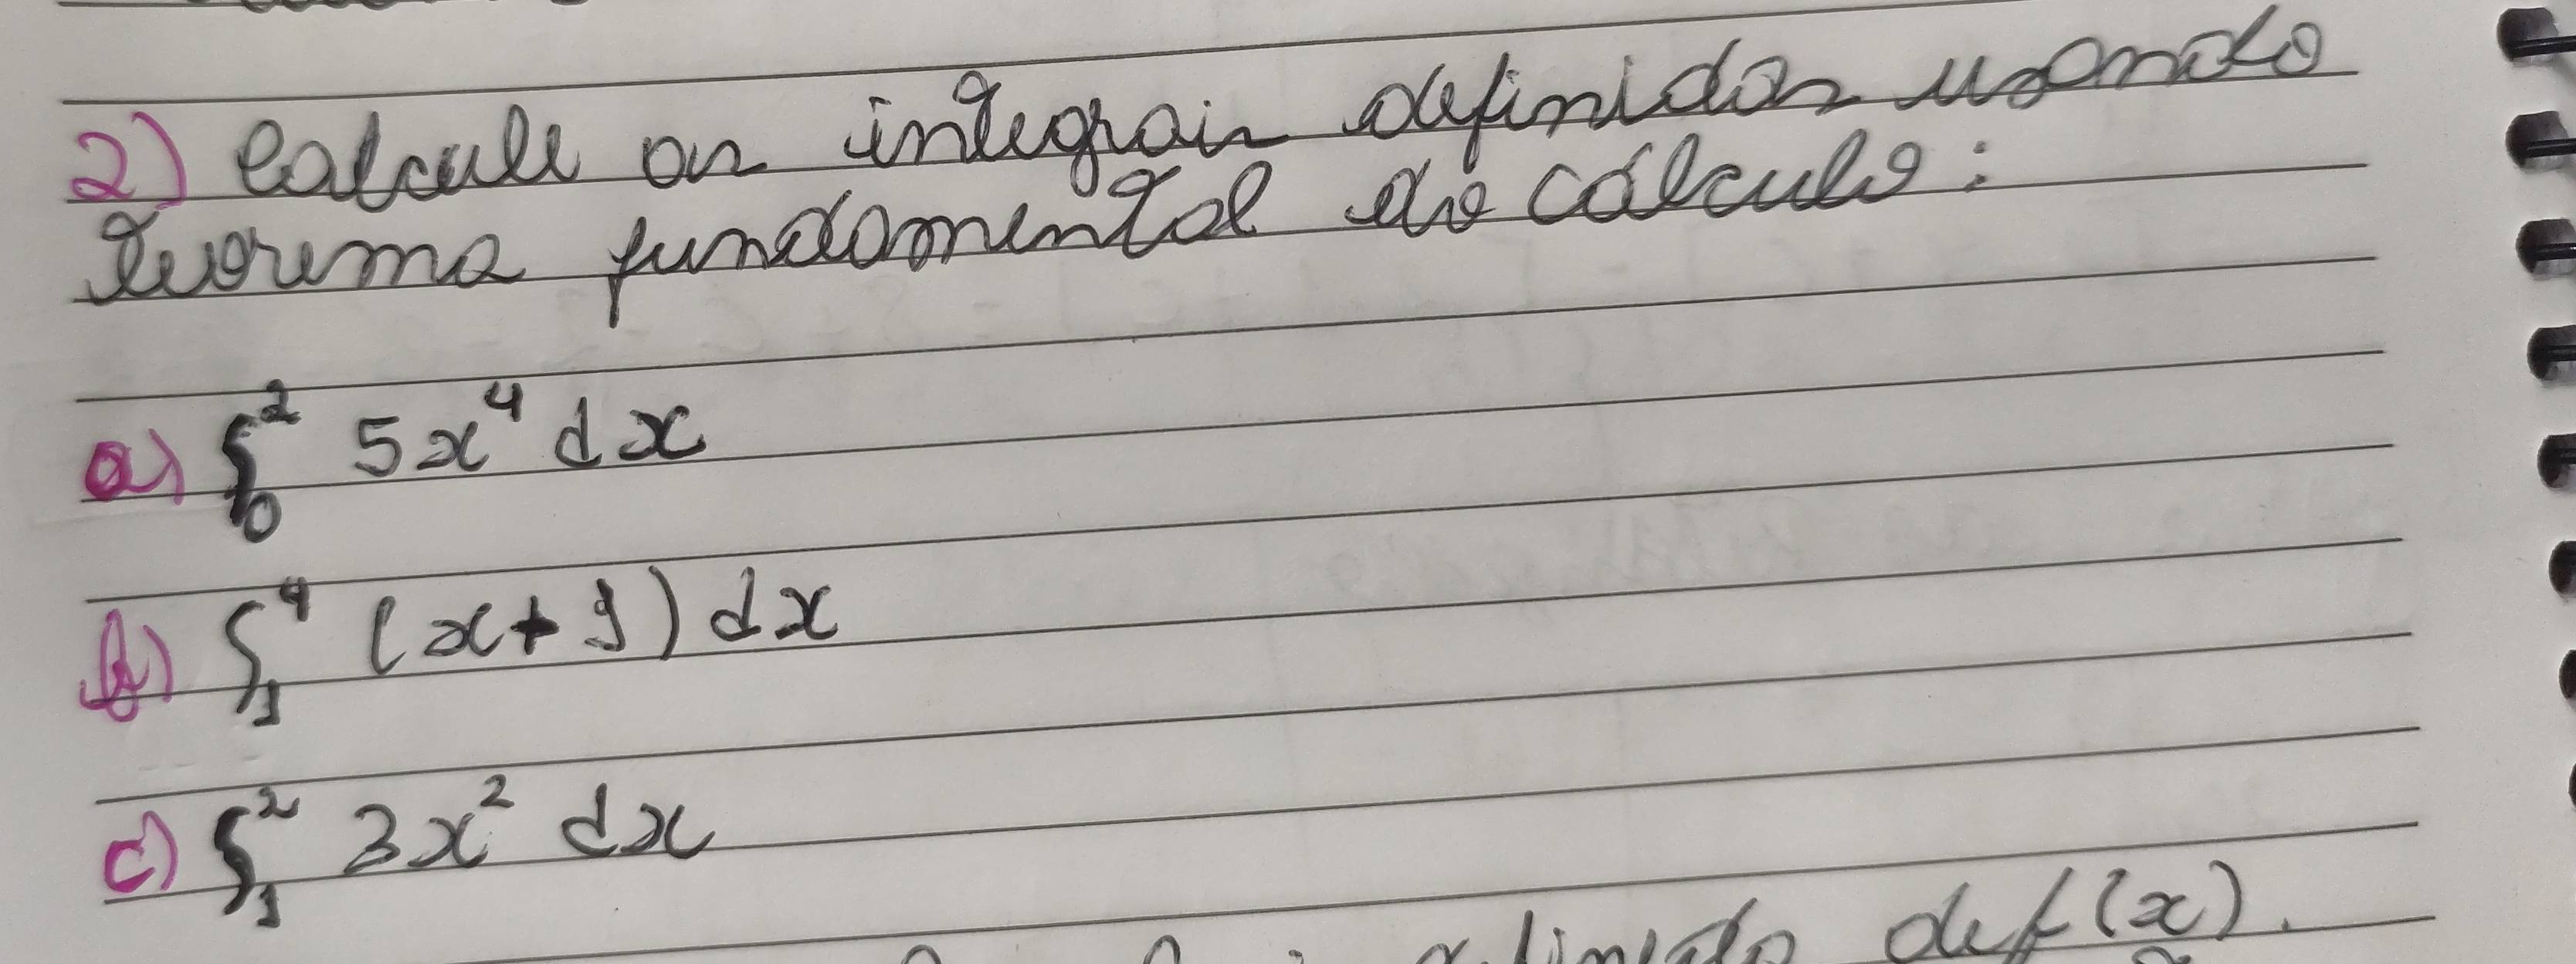 2) Calcule as integrais definidas usando
teorema fundamental do cálculo:
a) ∫₀² 5x⁴ dx
b) ∫₁⁴ (x+1) dx
c) ∫₁² 3x² dx
def(x).